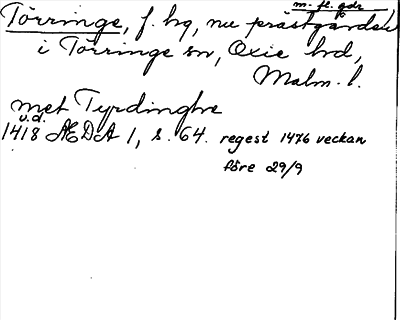 m. fl. gdr
Törringe, f. hg, nu prästgården
i Törringe sn, Oxie hd,
Malm. l.
met Tyrdinghe
u.d.
1418 ÆDA 1, s. 64. regest 1476 veckan
före 29/9